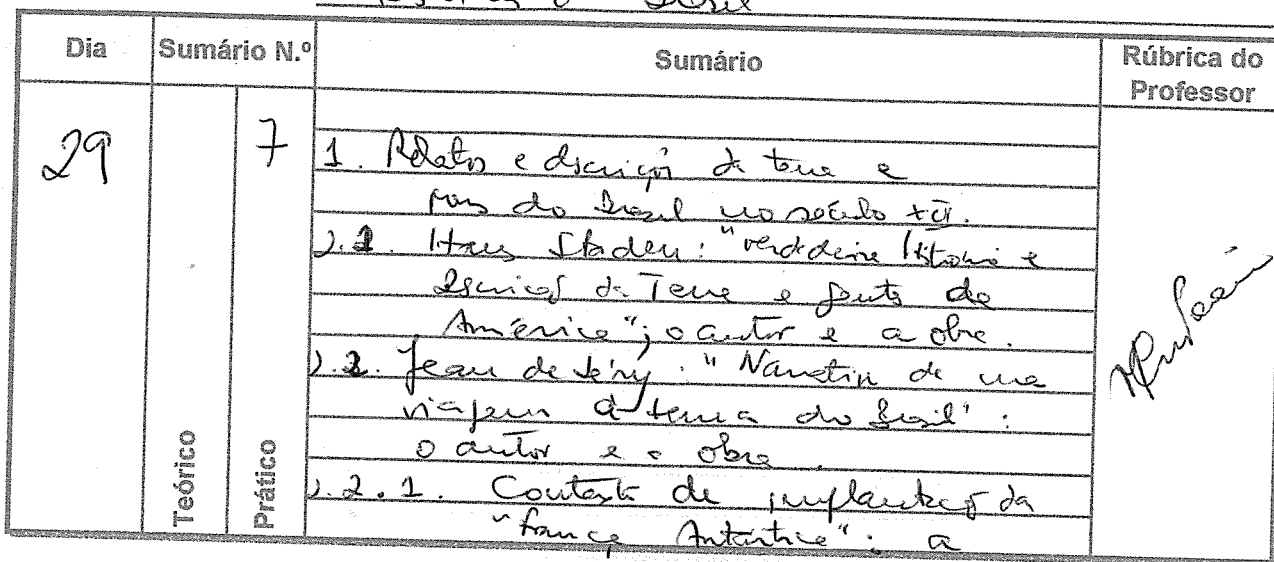 Brasil
Dia Sumário N.º Sumário Rúbrica do Professor
29 7
1. Relatos e descrições da terra e
povos do Brasil no século XVI.
1.1. Hans Staden: "Verdadeira História e
Descrição da Terra e gentes da
América"; o autor e a obra.
1.2. Jean de Léry: "Narrativa de uma
viagem à terra do Brasil":
o autor e a obra.
1.2.1. Contexto de implantação da
"França Antártica": a
Teórico
Prático